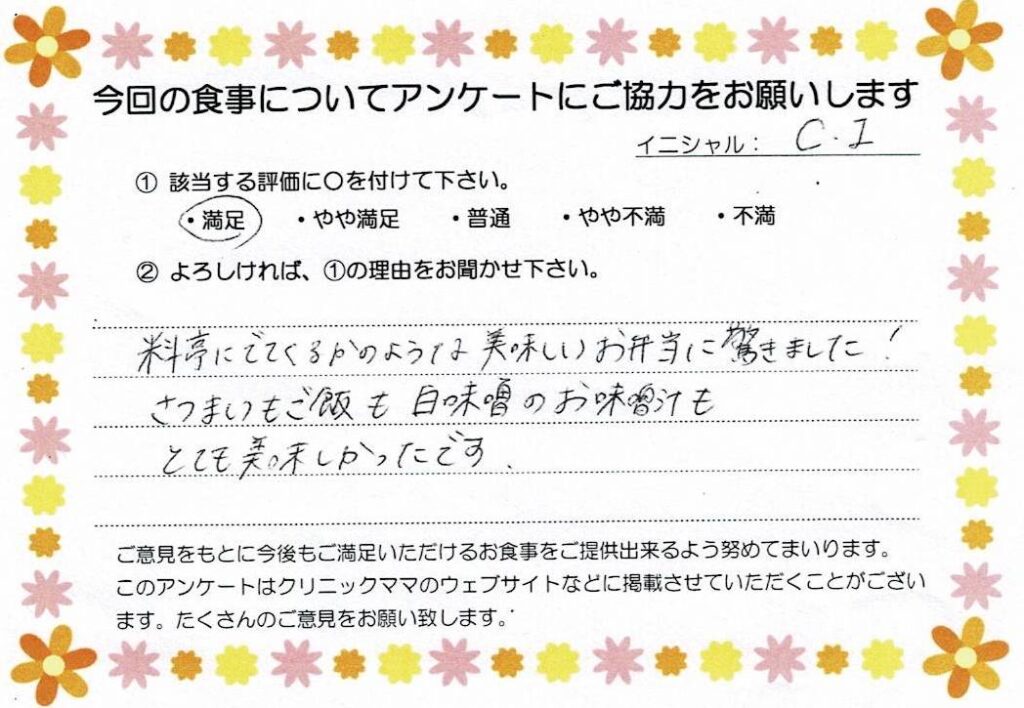 今回の食事についてアンケートにご協力をお願いします
イニシャル： C.I
① 該当する評価に〇を付けて下さい。
・満足 ・やや満足 ・普通 ・やや不満 ・不満
② よろしければ、①の理由をお聞かせ下さい。
料亭にでてくるかのような美味しいお弁当に驚きました！
さつまいもご飯も白味噌のお味噌汁も
とても美味しかったです．
ご意見をもとに今後もご満足いただけるお食事をご提供出来るよう努めてまいります。
このアンケートはクリニックママのウェブサイトなどに掲載させていただくことがござい
ます。たくさんのご意見をお願い致します。